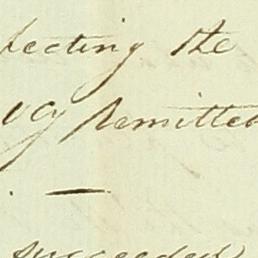 fecting the
acy remitted
. —
succeeded